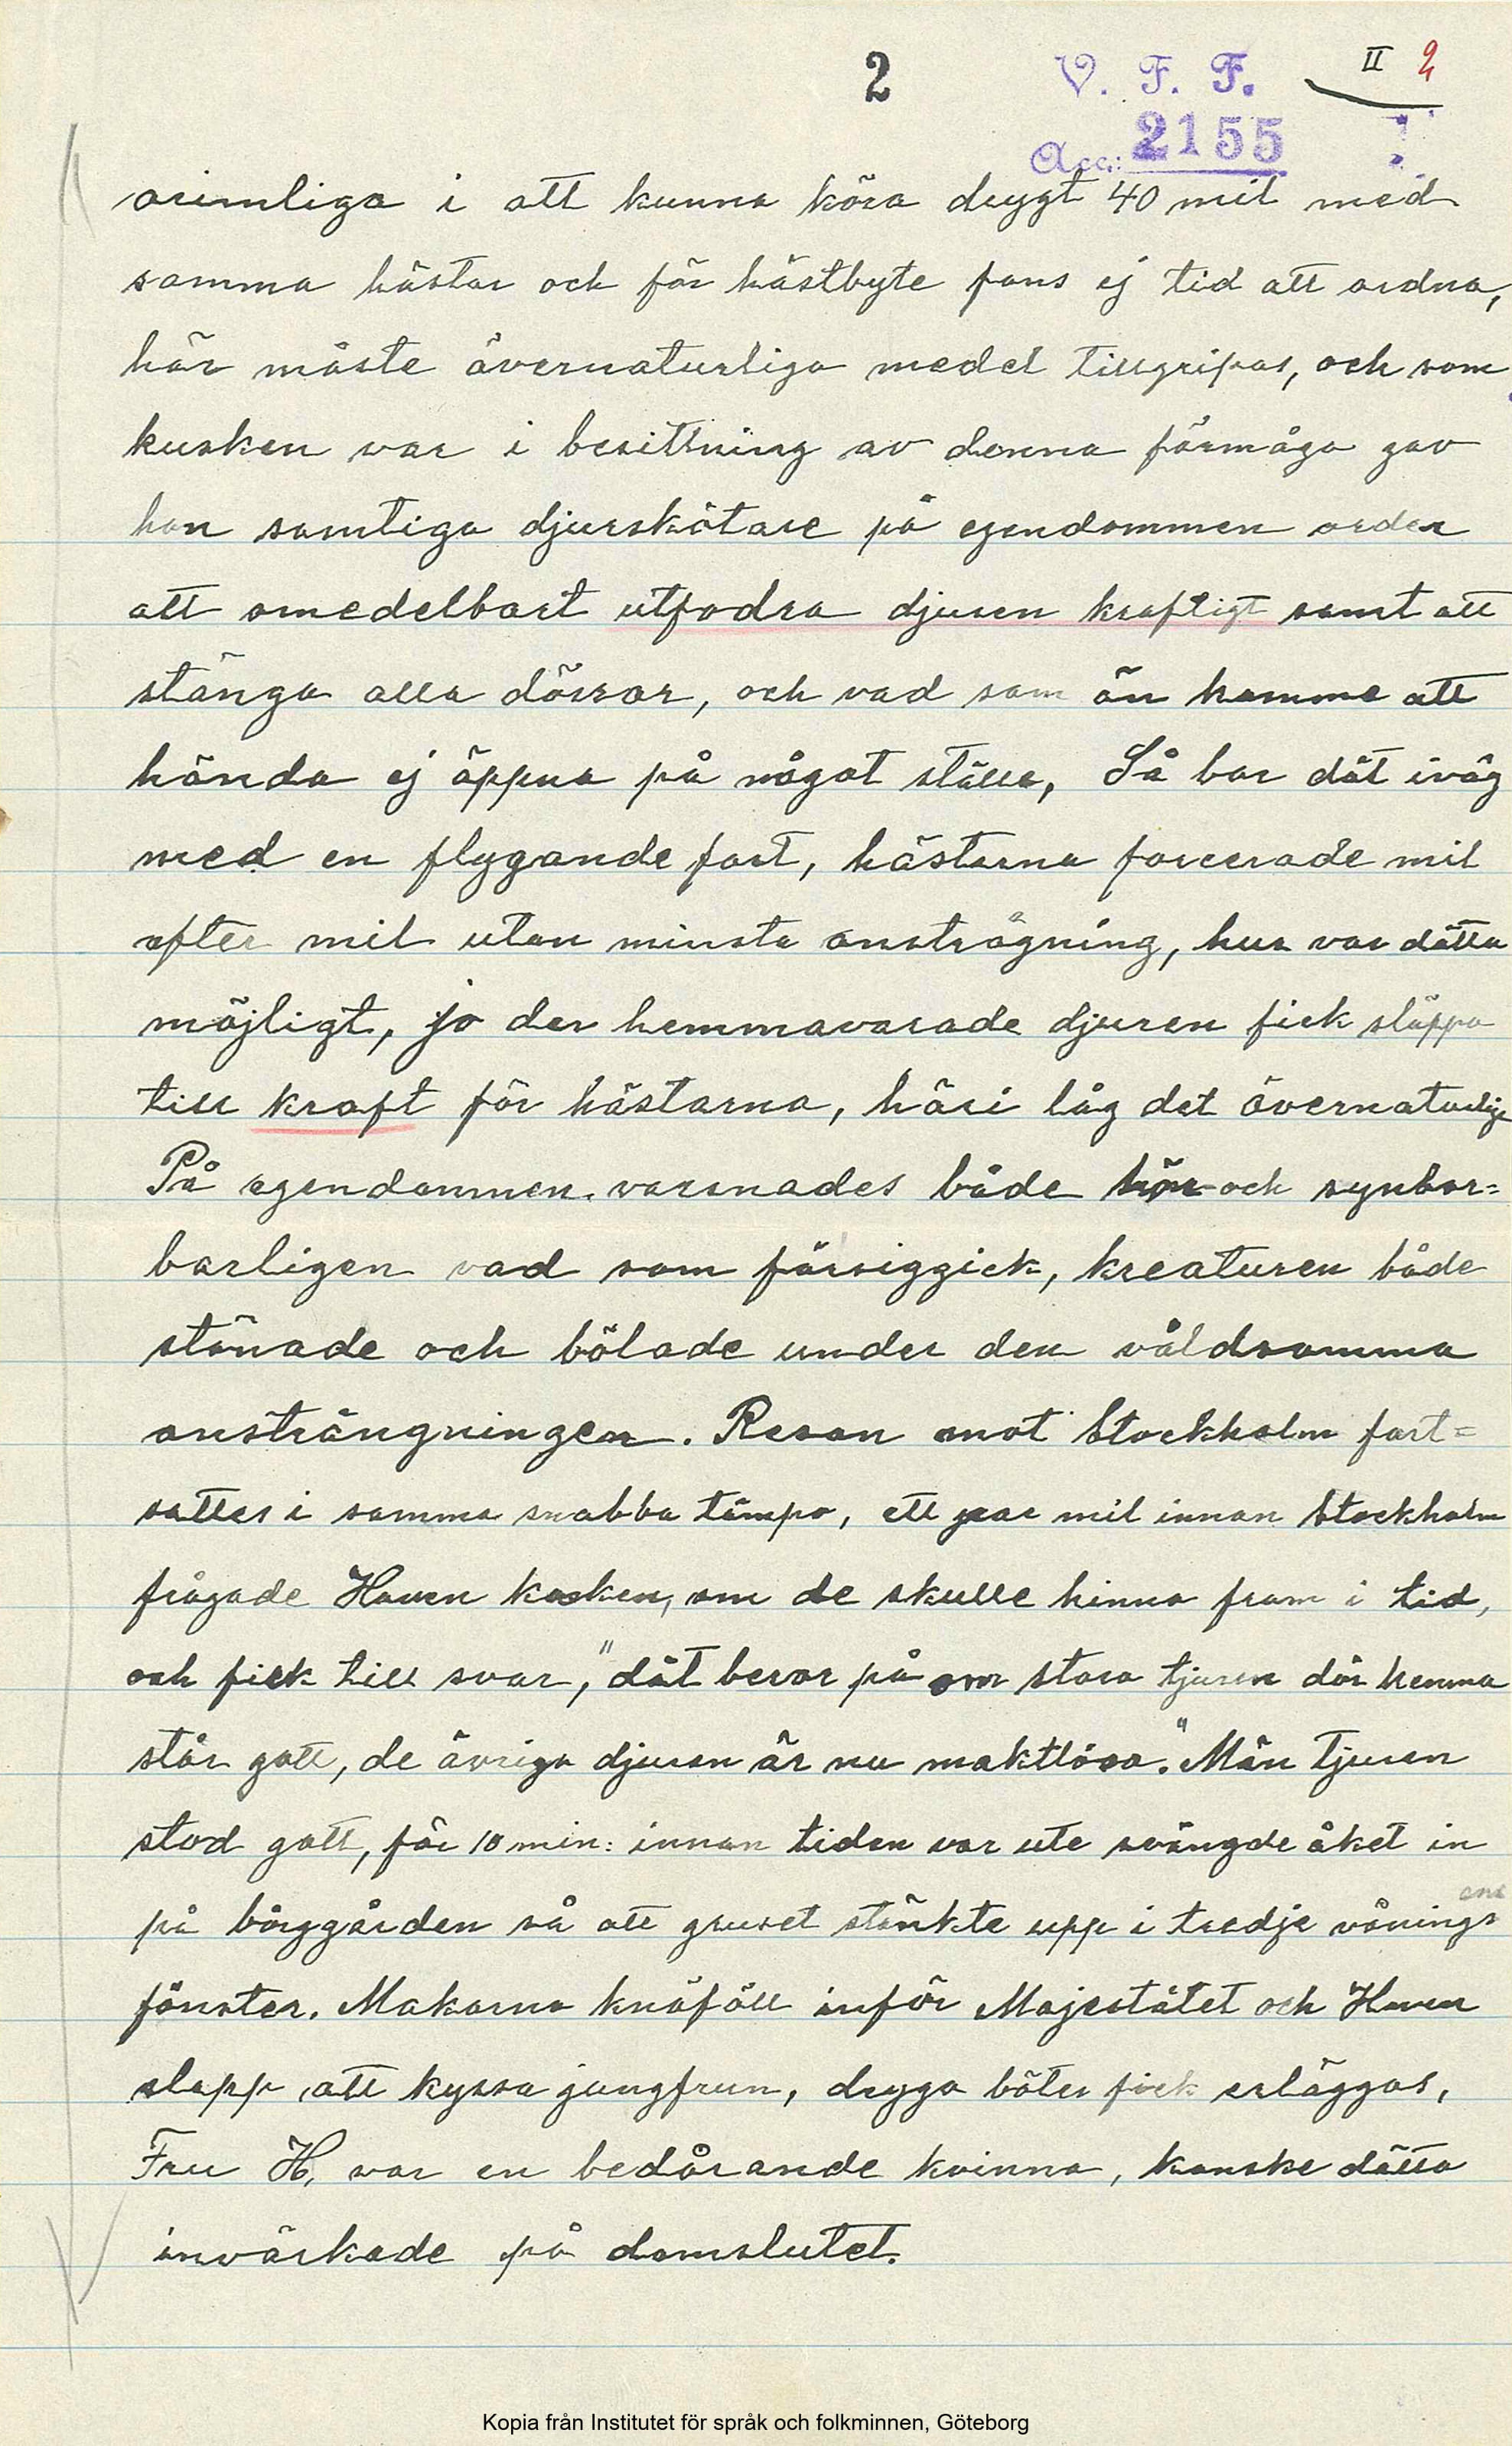 2 V. F. F. II 2
Acc: 2155
orimliga i att kunna köra drygt 40 mil med
samma hästar och för hästbyte fans ej tid att ordna,
här måste övernaturliga medel tillgripas, och som
kusken var i besittning av denna förmåga gav
han samtliga djurskötare på egendommen order
att omedelbart utfodra djuren kraftigt samt att
stänga alla dörrar, och vad som än komme att
hända ej öppna på något ställe, Så bar dät iväg
med en flygande fart, hästarna forcerade mil
efter mil utan minsta ansträgning, hur var dätta
möjligt, jo der hemmavarade djuren fick släppa
till kraft för hästarna, häri låg det övernaturliga
På egendommen varsnades både hör och synbar=
barligen vad som försiggick, kreaturen både
stönade och bölade under den våldsamma
ansträngningen. Resan mot Stockholm fort=
sattes i samma snabba tämpo, ett par mil innan Stockholm
frågade Haven kusken, om de skulle hinna fram i tid,
och fick till svar, "dät beror på om stora tjuren där hemma
står gott, de övriga djuren är nu maktlösa." Män tjuren
stod gott, för 10 min: innan tiden var ute svängde åket in
på bårggården så att gruset stänkte upp i tredje vånings
ens
fönster. Makarna knäföll inför Majestätet och Haven
slapp att kyssa jungfrun, dryga böter fick erläggas,
Fru H. var en bedårande kvinna, kanske dätta
invärkade på domslutet.
Kopia från Institutet för språk och folkminnen, Göteborg